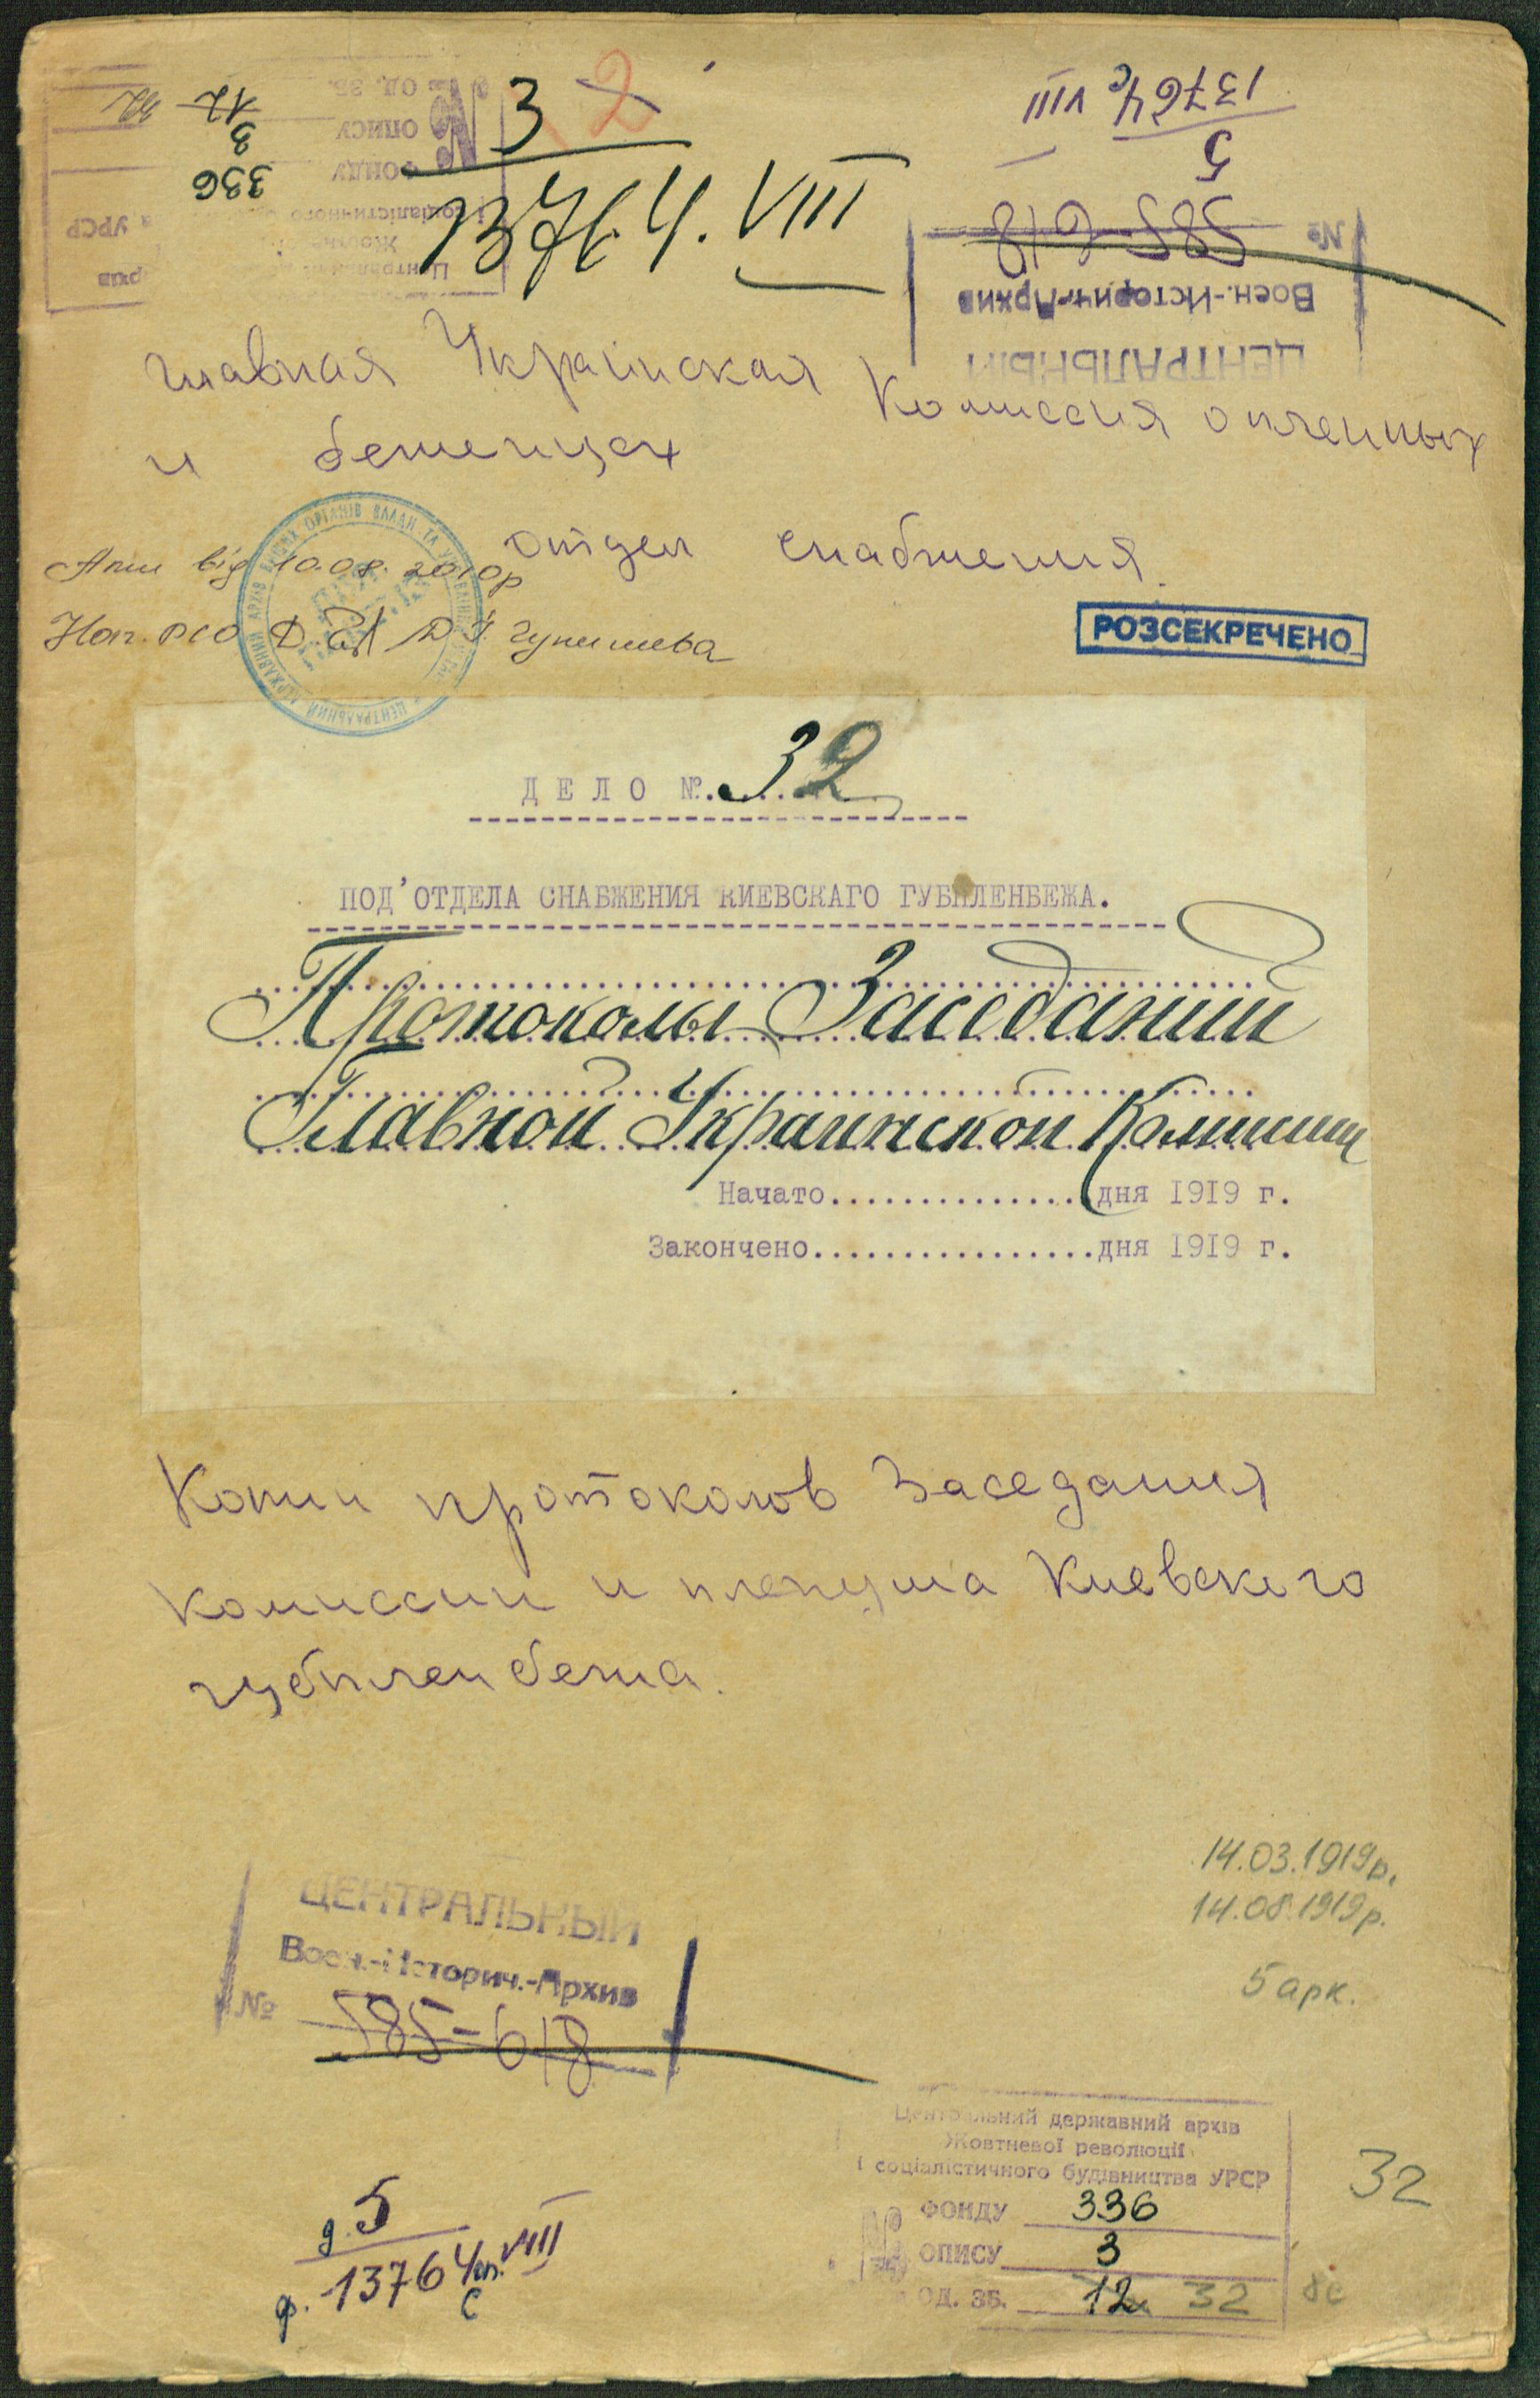 3 2
13764. VIII
13764с VIII
5
№ 585-618
Воен.-Историч-Архив
ЦЕНТРАЛЬНЫЙ
336
3
12
фонду
опису
од. зб.
Главная Украинская Комиссия о пленных
и беженцах
отдел снабжения.
Акт від 10.08.2010р
Нач. РСО
РОЗСЕКРЕЧЕНО
ДЕЛО №. 32
ПОД'ОТДЕЛА СНАБЖЕНИЯ КИЕВСКАГО ГУБПЛЕНБЕЖА.
Протоколы Заседаний
Главной Украинской Комиссии
Начато................дня 1919 г.
Закончено................дня 1919 г.
Копии протоколов заседания
комиссии и пленума Киевского
губпленбежа.
14.03.1919р.
14.08.1919р.
5 арк.
ЦЕНТРАЛЬНЫЙ
Воен.-Историч.-Архив
№ 585-618
Центральний державний архів
Жовтневої революції
і соціалістичного будівництва УРСР
№ ФОНДУ 336
ОПИСУ 3
ОД. ЗБ. 12 32
32
д. 5
ф. 13764 оп. VIII
с